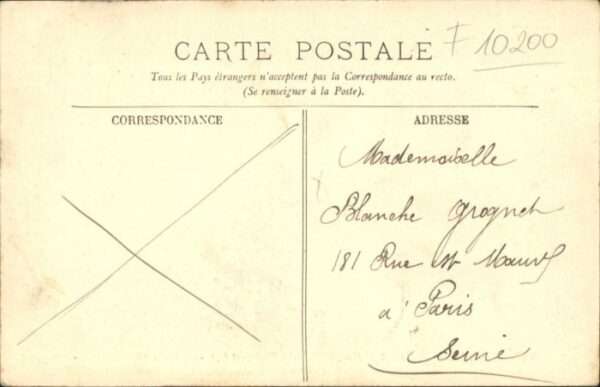 CARTE POSTALE
F 10200
Tous les Pays étrangers n'acceptent pas la Correspondance au recto.
(Se renseigner à la Poste).
CORRESPONDANCE
ADRESSE
Mademoiselle
Blanche
181 Rue St
a Paris
Seine